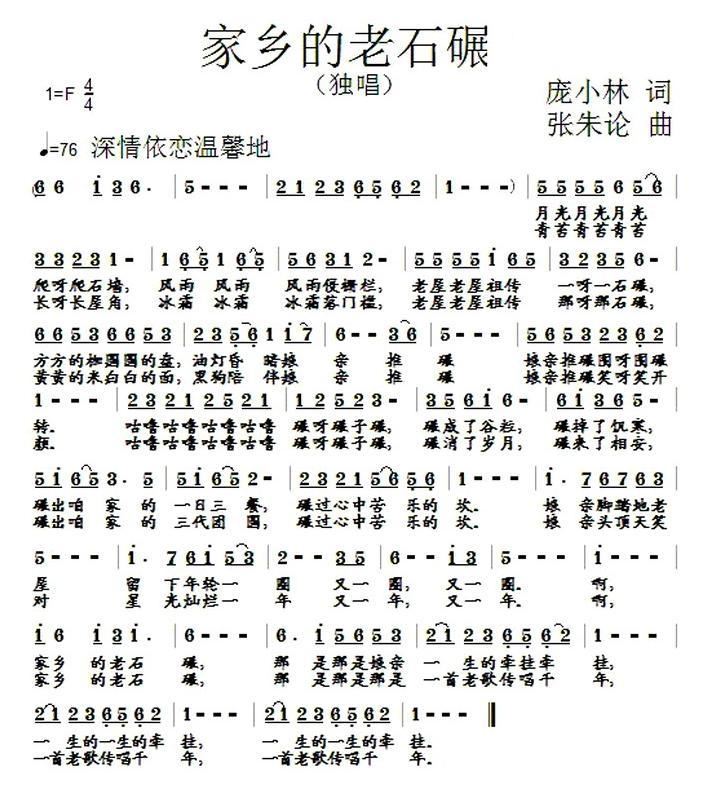 家乡的老石碾
（独唱）
1=F 4/4
庞小林 词
张朱论 曲
♩=76 深情依恋温馨地
(6 6 i 3 6 · | 5 - - - | 2 1 2 3 6 5 6 2 | 1 - - - ) | 5 5 5 5 6 5 6 |
月光月光月光
青苔青苔青苔
3 3 2 3 1 - | 1 6 5 1 6 5 | 5 6 3 1 - | 5 5 5 5 i 6 5 | 3 2 3 5 6 - |
爬呀爬石墙； 风雨 风雨 风雨侵栅栏； 老屋老屋祖传 一呀一石碾；
长呀长屋角； 冰霜 冰霜 冰霜落门槛； 老屋老屋祖传 那呀那石碾；
6 6 5 3 6 6 5 3 | 2 3 5 6 1 i 7 | 6 - - 3 6 | 5 - - - | 5 6 5 3 2 3 6 2 |
方方的枷圆圆的盘；油灯昏 暗娘 亲 推 碾 娘亲推碾图呀图碾
黄黄的米白白的面；黑狗陪 伴娘 亲 推 碾 娘亲推碾笑呀笑开
1 - - - | 2 3 2 1 2 5 2 1 | 1 2 5 2 3 - | 3 5 6 i 6 - | 6 i 3 6 5 - |
转。 咕噜咕噜咕噜咕噜 碾呀碾子碾； 碾成了谷粒； 碾掉了饥寒；
颜。 咕噜咕噜咕噜咕噜 碾呀碾子碾； 碾消了岁月； 碾来了相安；
5 i 6 5 3 · 5 | 5 i 6 5 2 - | 2 3 2 1 5 6 5 6 | 1 - - - | i · 7 6 7 6 3 |
碾出咱 家 的 一日三 餐； 碾过心中苦 乐的 坎。 娘 亲脚踏地老
碾出咱 家 的 三代团 圆； 碾过心中苦 乐的 坎。 娘 亲头顶天笑
5 - - - | i · 7 6 i 5 3 | 2 - - 3 5 | 6 - - i 3 | 5 - - - | i - - - |
屋 留 下年轮一 圈 又一 圈； 又一 圈。 啊；
对 星 光灿烂一 年 又一 年； 又一 年。 啊；
i 6 i 3 i · | 6 - - - | 6 · i 5 6 5 3 | 2 1 2 3 6 5 6 2 | 1 - - - |
家乡 的老石 碾； 那 是那是娘亲 一 生的牵挂牵 挂；
家乡 的老石 碾； 那 是那是那是 一首老歌传唱千 年；
2 1 2 3 6 5 6 2 | 1 - - - | 2 1 2 3 6 5 6 2 | 1 - - - ‖
一 生的一生的牵 挂； 一 生的一生的牵 挂。
一首老歌传唱千 年； 一首老歌传唱千 年。